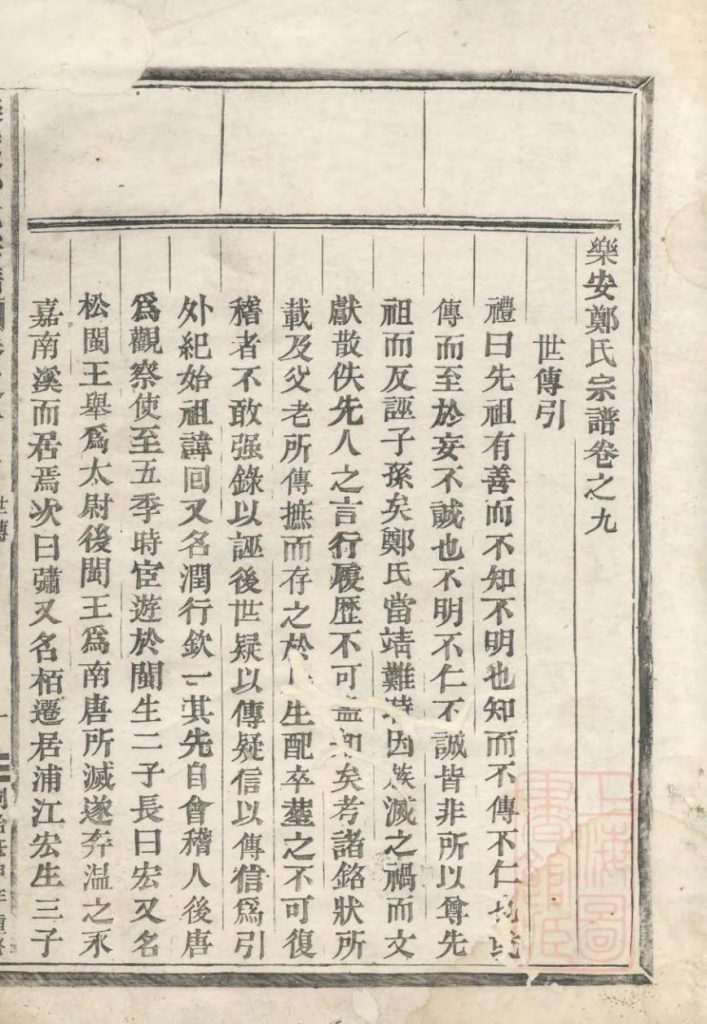 樂安鄭氏宗譜卷之九
世傳引
禮曰先祖有善而不知不明也知而不傳不仁也
傳而至於妄不誠也不明不仁不誠皆非所以尊先
祖而反誣子孫矣鄭氏當靖難時因族滅之禍而文
獻散佚先人之言行履歷不可盡知矣考諸銘狀所
載及父老所傳摭而存之於生配卒塟之不可復
稽者不敢强錄以誣後世疑以傳疑信以傳信爲引
外紀始祖諱回又名潤行欽一其先自會稽人後唐
爲觀察使至五季時宦遊於閩生二子長曰宏又名
松閩王舉爲太尉後閩王爲南唐所滅遂弃温之永
嘉南溪而居焉次曰彇又名栢遷居浦江宏生三子
世傳
上海圖書館